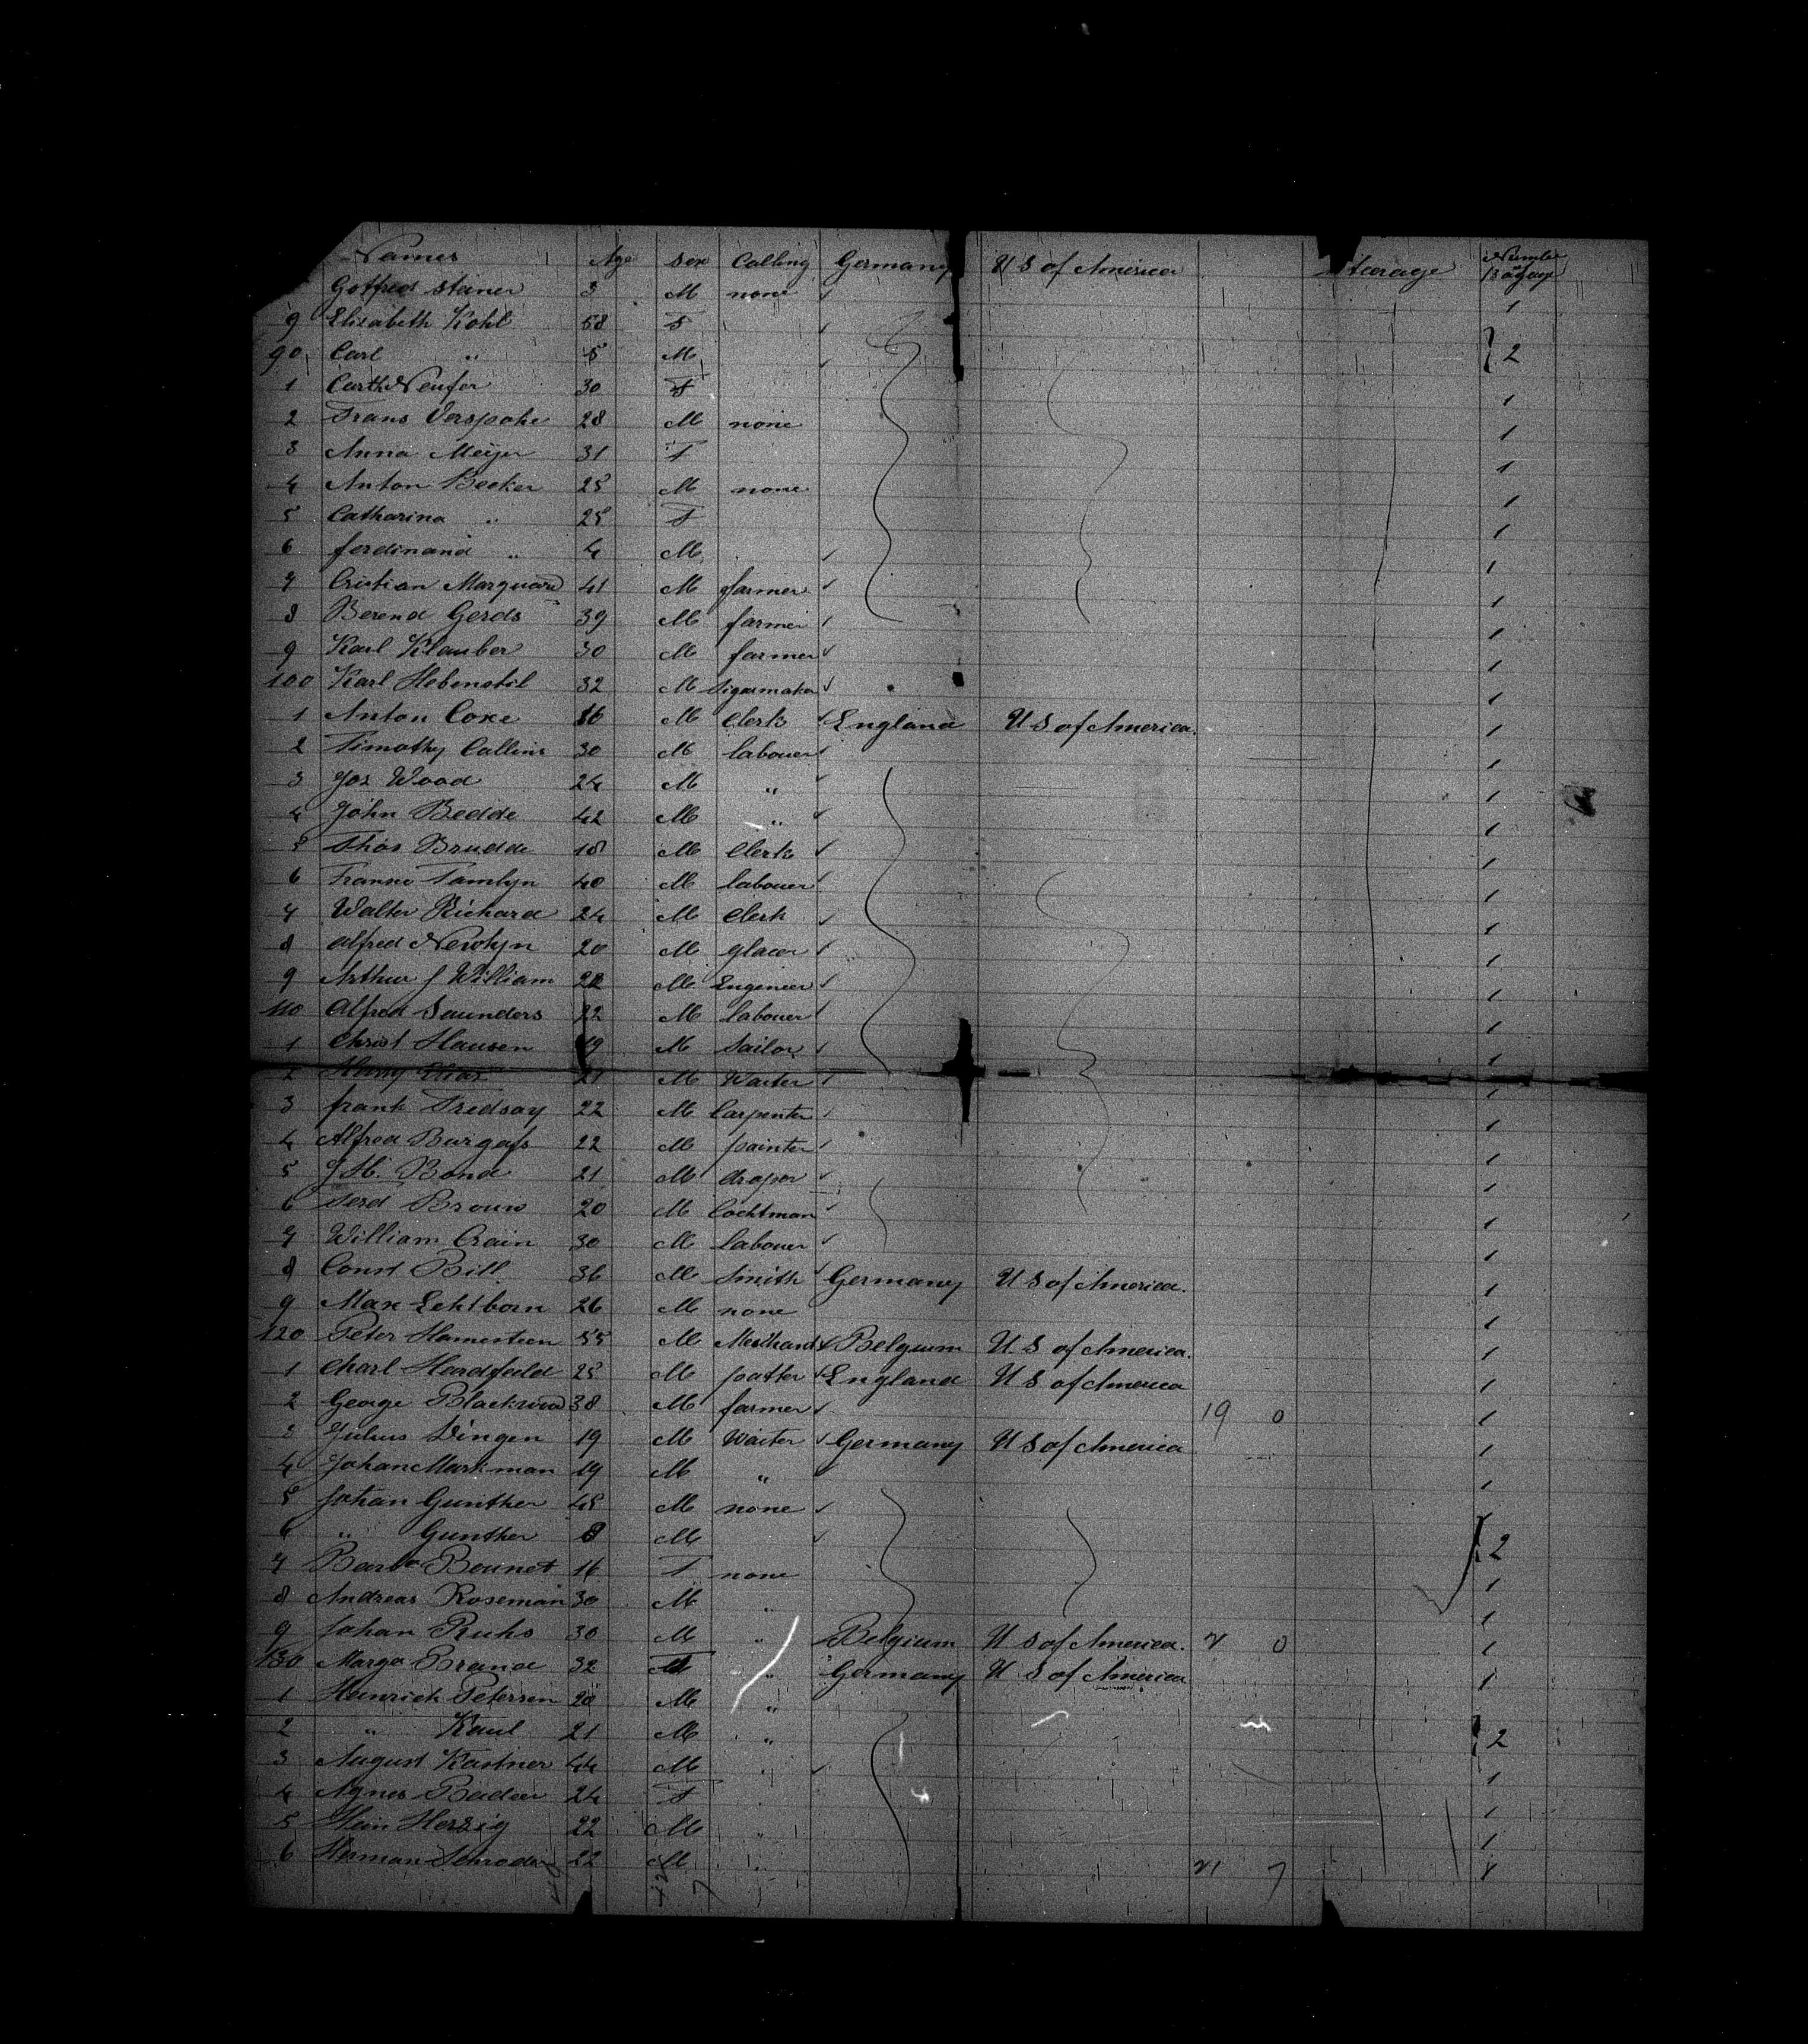 Names Age Sex Calling Germany U S of America Number Bagage
Gotfred Steiner 3 M none 1
9 Elisabeth Kohl 58 F
90 Carl " 5 M 2
1 30 F 1
2 Frans Verspohe 28 M none 1
3 Anna Meijer 31 F 1
4 Anton Becker 25 M none 1
5 Catharina " 25 F 1
6 ferdinand " 4 M 1
7 Cristian Marquard 41 M farmer 1
8 Berend Gerds 39 M farmer 1
9 Karl Klauber 30 M farmer 1
100 Karl Hebenstil 32 M Sigarmaker 1
1 Anton Coxe 16 M Clerk England U S of America. 1
2 Timothy Callins 30 M labouer 1
3 Jos Wood 24 M " 1
4 John Bedde 42 M " 1
5 Thos Brudde 18 M Clerk 1
6 Tamlyn 40 M labouer 1
7 Walter Richard 24 M Clerk 1
8 Alfred Newlyn 20 M glacer 1
9 Arthur J William 22 M Engeneer 1
110 Alfred Saunders 22 M labouer 1
1 Christ Hausen 19 M Sailor 1
2 Harry 21 M Waiter 1
3 frank Tredsay 22 M Carpenter 1
4 Alfred Burgass 22 M painter 1
5 J H. Bond 21 M draper 1
6 Ferd Broun 20 M Cochtman 1
7 William Crain 30 M labouer 1
8 Const Bill 36 M Smith Germany U S of America. 1
9 Max Lehtborn 26 M none 1
120 Peter Hamesteen 55 M Merthant Belgium U S of America. 1
1 Charl Hardfeeld 25 M potter England U S of America 1
2 George Blackwood 38 M farmer 19 0 1
3 Julius Dingen 19 M Waiter Germany U S of America 1
4 Johan Markman 19 M " 1
5 Johan Gunther 45 M none
6 " Gunther 8 M 2
7 Barba Beunet 16 F none 1
8 Andreas Roseman 30 M " 1
9 Johan Ruhs 30 M " Belgium U S of America. 2 0 1
130 Marga Brand 32 " Germany U S of America 1
1 Heinrich Petersen 20 M "
2 " Kaul 21 M " 2
3 August Kastner 44 M " 1
4 Agnes Bader 24 F 1
5 Hein Herzig 22 M " 1
6 Herman Schroder 22 M " 21 7 1